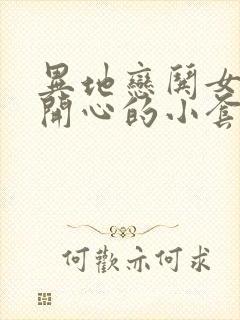 異地戀鬨女
開心的小套
何歡亦何求